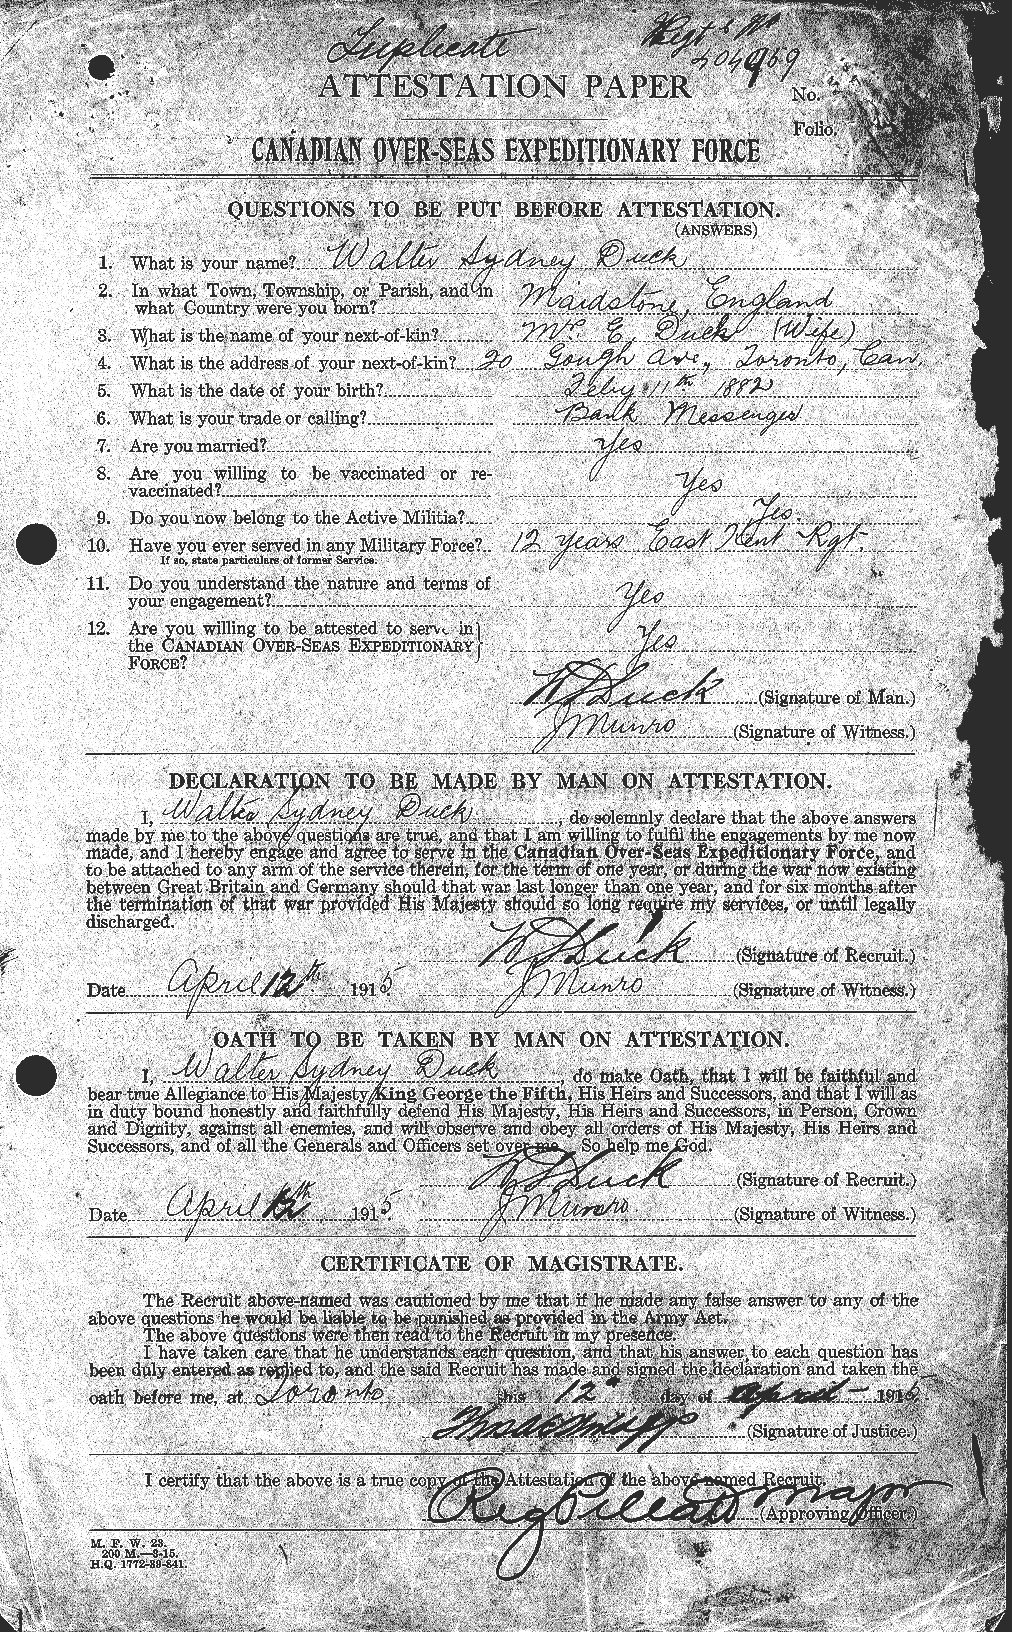 Triplicate
Regt's No
404959
ATTESTATION PAPER
No.
Folio.
CANADIAN OVER-SEAS EXPEDITIONARY FORCE
QUESTIONS TO BE PUT BEFORE ATTESTATION.
(ANSWERS)
1. What is your name? Walter Sydney Duck
2. In what Town, Township, or Parish, and in
what Country were you born? Maidstone, England
3. What is the name of your next-of-kin? Mrs. E. Duck (Wife)
4. What is the address of your next-of-kin? 20 Gough Ave., Toronto, Can.
5. What is the date of your birth? Feby 11th 1882
6. What is your trade or calling? Bank Messenger
7. Are you married? Yes
8. Are you willing to be vaccinated or re-
vaccinated? Yes
9. Do you now belong to the Active Militia? Yes.
10. Have you ever served in any Military Force? 12 years East Kent Rgt.
If so, state particulars of former Service.
11. Do you understand the nature and terms of
your engagement? Yes
12. Are you willing to be attested to serve in
the CANADIAN OVER-SEAS EXPEDITIONARY
FORCE? Yes
W S Duck (Signature of Man.)
J Munro (Signature of Witness.)
DECLARATION TO BE MADE BY MAN ON ATTESTATION.
I, Walter Sydney Duck, do solemnly declare that the above answers
made by me to the above questions are true, and that I am willing to fulfil the engagements by me now
made, and I hereby engage and agree to serve in the Canadian Over-Seas Expeditionary Force, and
to be attached to any arm of the service therein, for the term of one year, or during the war now existing
between Great Britain and Germany should that war last longer than one year, and for six months after
the termination of that war provided His Majesty should so long require my services, or until legally
discharged.
W S Duck (Signature of Recruit.)
Date April 12th 1915 J Munro (Signature of Witness.)
OATH TO BE TAKEN BY MAN ON ATTESTATION.
I, Walter Sydney Duck, do make Oath, that I will be faithful and
bear true Allegiance to His Majesty King George the Fifth, His Heirs and Successors, and that I will as
in duty bound honestly and faithfully defend His Majesty, His Heirs and Successors, in Person, Crown
and Dignity, against all enemies, and will observe and obey all orders of His Majesty, His Heirs and
Successors, and of all the Generals and Officers set over me. So help me God.
W S Duck (Signature of Recruit.)
Date April 12th 1915. J Munro (Signature of Witness.)
CERTIFICATE OF MAGISTRATE.
The Recruit above-named was cautioned by me that if he made any false answer to any of the
above questions he would be liable to be punished as provided in the Army Act.
The above questions were then read to the Recruit in my presence.
I have taken care that he understands each question, and that his answer to each question has
been duly entered as replied to, and the said Recruit has made and signed the declaration and taken the
oath before me, at Toronto this 12th day of April 1915
(Signature of Justice.)
I certify that the above is a true copy of the Attestation of the above-named Recruit.
Reg Pellatt Major (Approving Officer.)
M. F. W. 23.
200 M.—3-15.
H.Q. 1772-39-841.